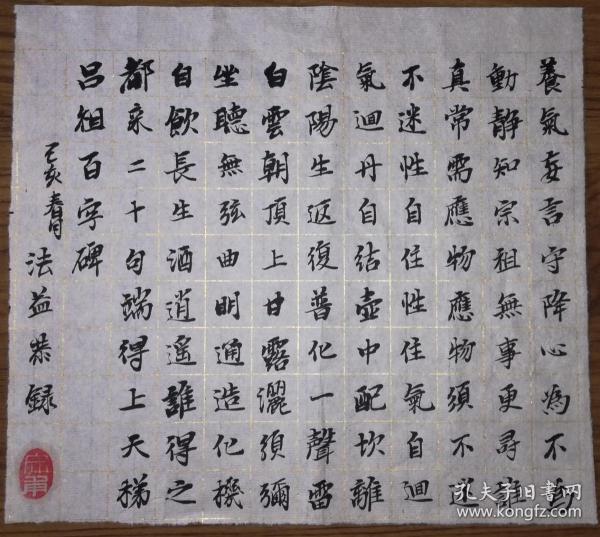 養氣妄言守降心為不為
動靜知宗祖無事更尋誰
真常需應物應物須不迷
不迷性自住性住氣自迴
氣迴丹自结壺中配坎離
陰陽生返復普化一聲雷
白雲朝頂上甘露灑須彌
自飲長生酒逍遥誰得之
坐聽無弦曲明通造化機
都来二十句端得上天梯
吕祖百字碑
己亥春月
法益恭録
孔夫子旧書网
www.kongfz.com